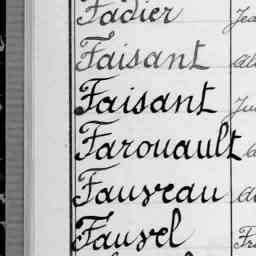 Fadier
Faisant
Faisant
Farouault
Fauveau
Fauvel